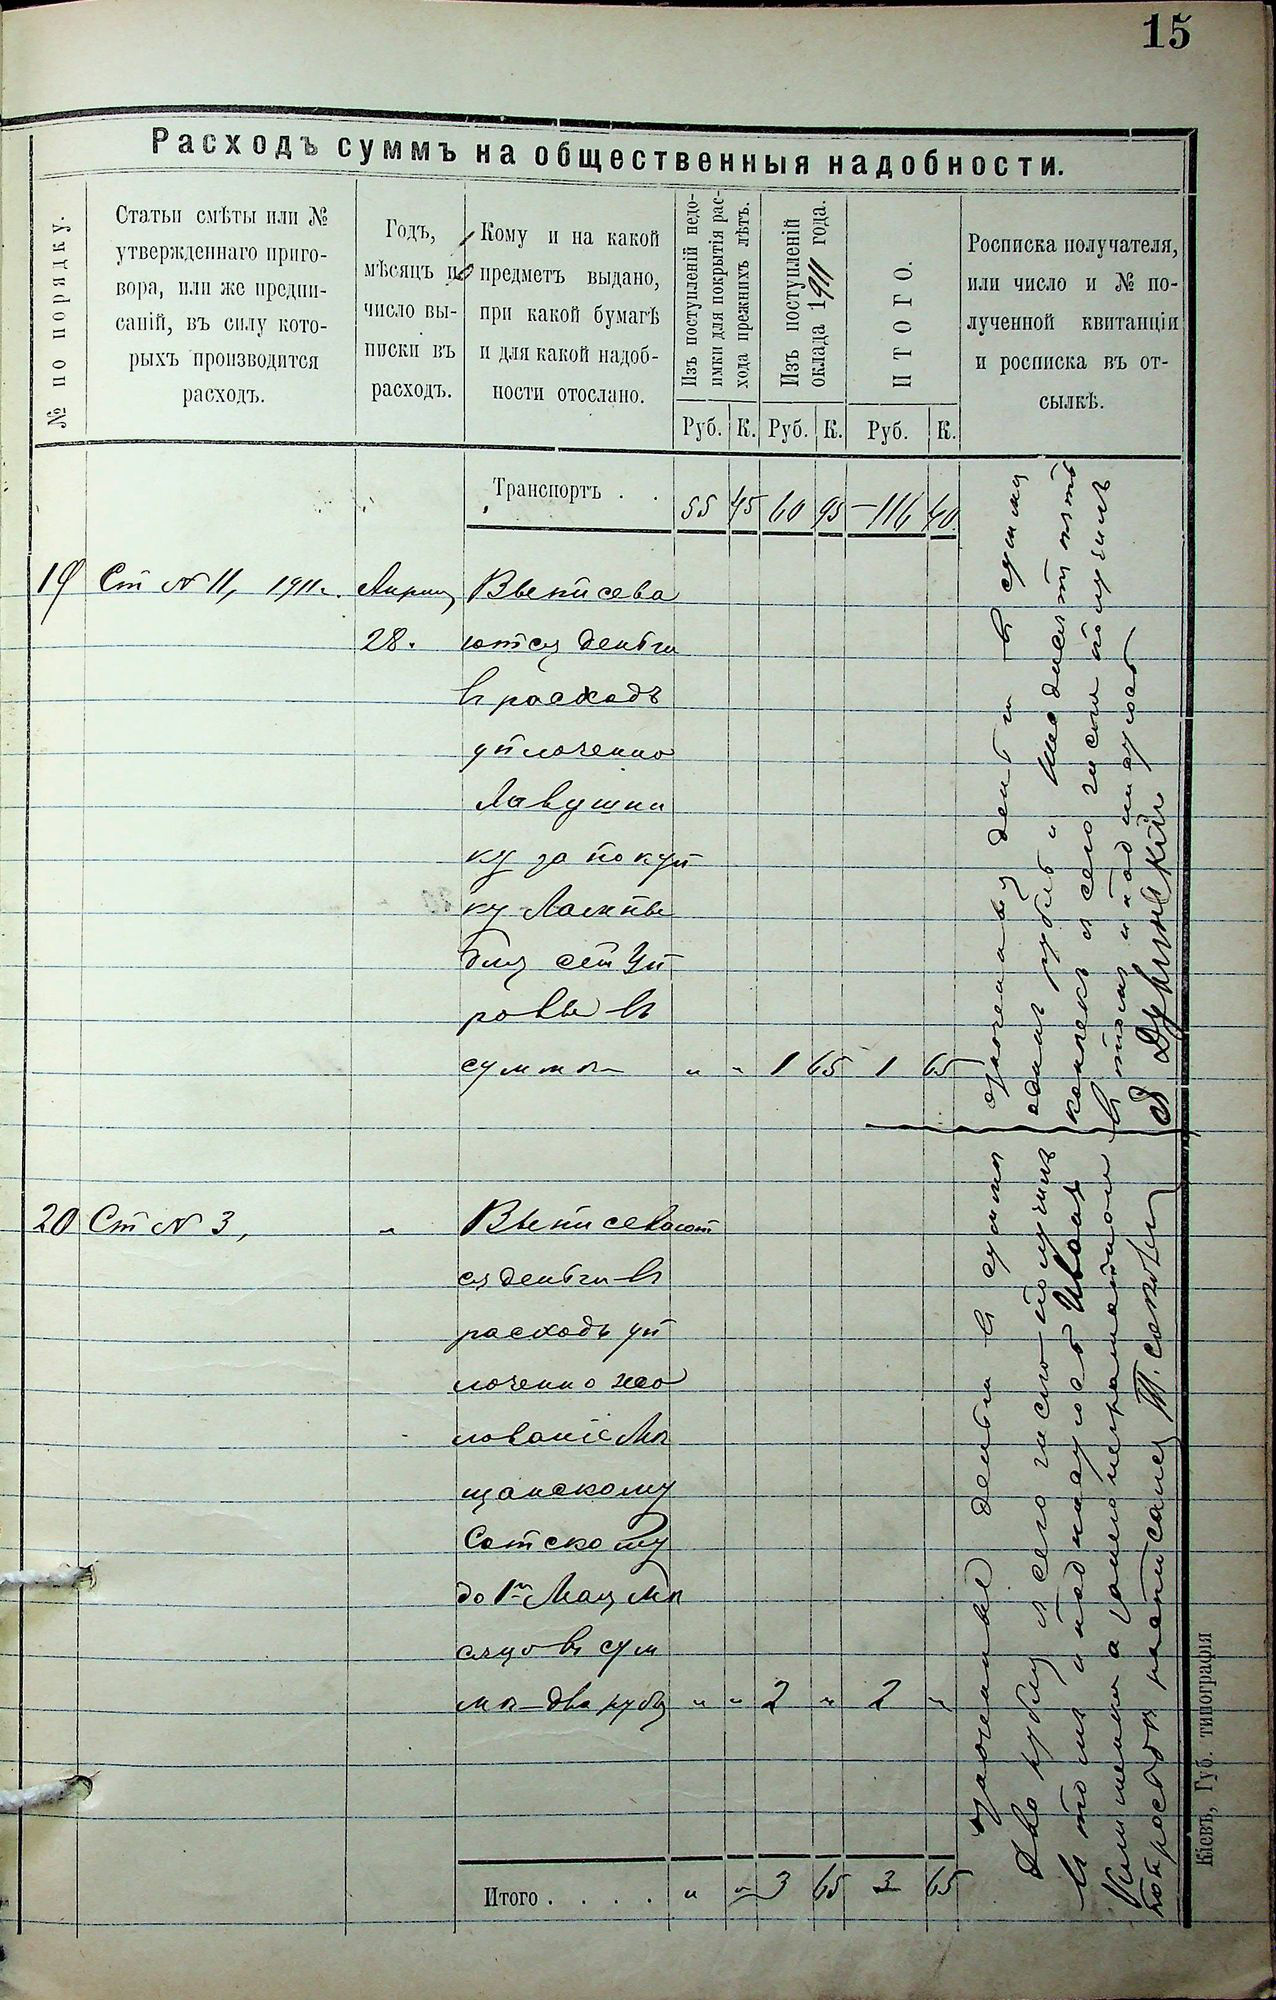 15
Расходъ суммъ на общественныя надобности.
№ по порядку.
Статьи смѣты или №
утвержденнаго приго-
вора, или же предпи-
саній, въ силу кото-
рыхъ производится
расходъ.
Годъ,
мѣсяцъ и
число вы-
писки въ
расходъ.
Кому и на какой
предметъ выдано,
при какой бумагѣ
и для какой надоб-
ности отослано.
Изъ поступленій недо-
имки для покрытія рас-
хода прежнихъ лѣтъ.
Изъ поступленій
оклада 1911 года.
ИТОГО.
Росписка получателя,
или число и № по-
лученной квитанціи
и росписка въ от-
сылкѣ.
Руб. К. Руб. К. Руб. К.
Транспортъ . . 55 45 60 95 116 40
19 Ст № 11, 1911 г. Апрель Выписева
28. ются деньги
въ расходъ
уплоченно
Лавушни
ку за покуп
ку Лампы
для сел Уп
равы въ
суммѣ " " 1 65 1 65
деньги въ сумме
одинъ рубль и шесдиситъ пять
копѣекъ я сего числа получилъ
въ томъ и подписуюсь
20 Ст № 3, " Выписевают
ся деньги въ
расходъ уп
лоченно жа
лованіе Мѣ
щанскому
Сотскому
до 1го Мая мѣ
сяца въ сум
мѣ два рубля " " 2 " 2 "
деньги въ сумме
Два рубля я сего число получилъ
въ томъ и подписуюсь Иванъ
а занего неграматного
по просьбѣ росписался
Итого . . . . " " 3 65 3 65
Кіевъ, Губ. типографія